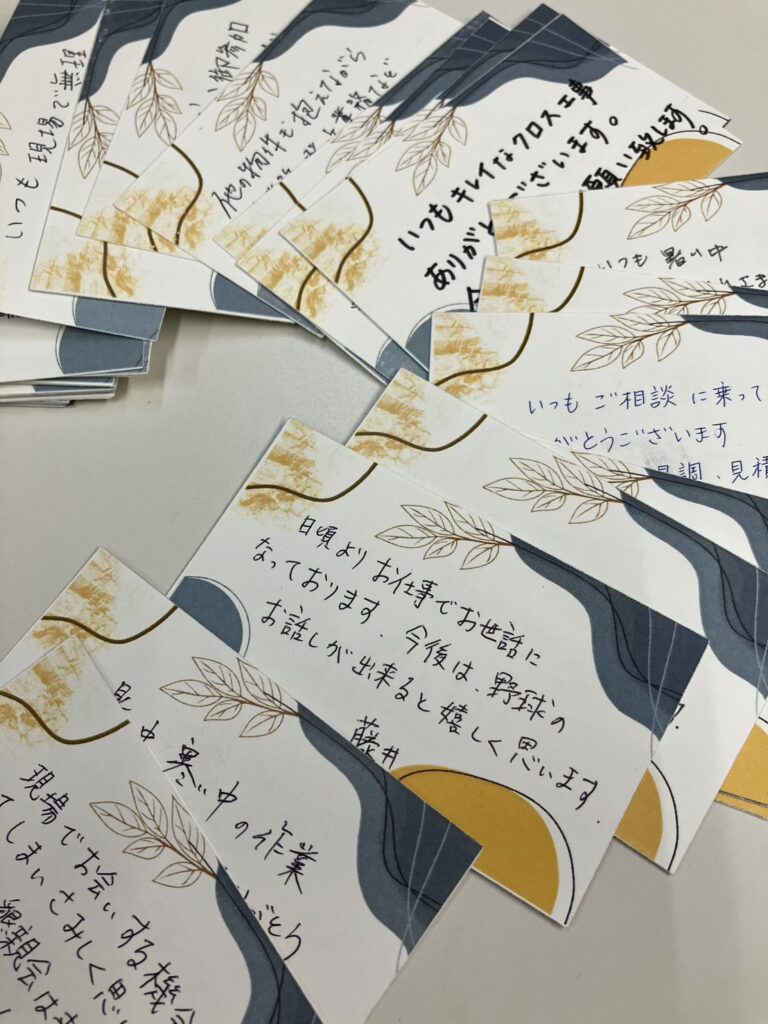 いつも現場で無理
御参加
他の物件も抱えながら
業務など
いつもキレイなクロス工事
ありがとうございます。
願い致します。
いつも暑い中
いつもご相談に乗って
がとうございます
見積
日頃よりお仕事でお世話に
なっております。今後は、野球の
お話しが出来ると嬉しく思います
藤井
寒い中
中の作業
がとう
現場でお会いする機会
てしまいさみしく思い
懇親会は